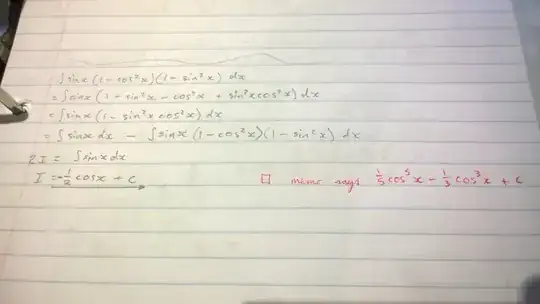 ∫sinx (1-cos²x)(1-sin²x) dx
= ∫sinx (1 - sin²x - cos²x + sin²xcos²x) dx
= ∫sinx (1 - sin²x cos²x) dx
= ∫sinx dx - ∫sinx (1-cos²x)(1-sin²x) dx
2I = ∫sinx dx
I = -1/2 cosx + c
□ memo says 1/5 cos⁵x - 1/3 cos³x + c